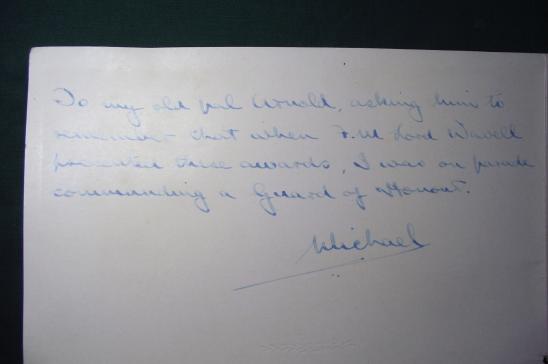 To my old pal Arnold, asking him to
remember that when F.M Lord Wavell
presented these awards, I was on parade
commanding a Guard of Honour.
Michael